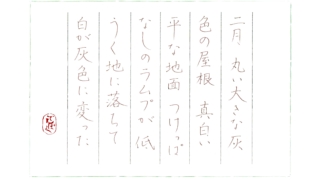 二月、丸い大きな灰
色の屋根 真白い
平な地面 つけっぱ
なしのラムプが 低
うく地に落ちて
白が灰色に変った